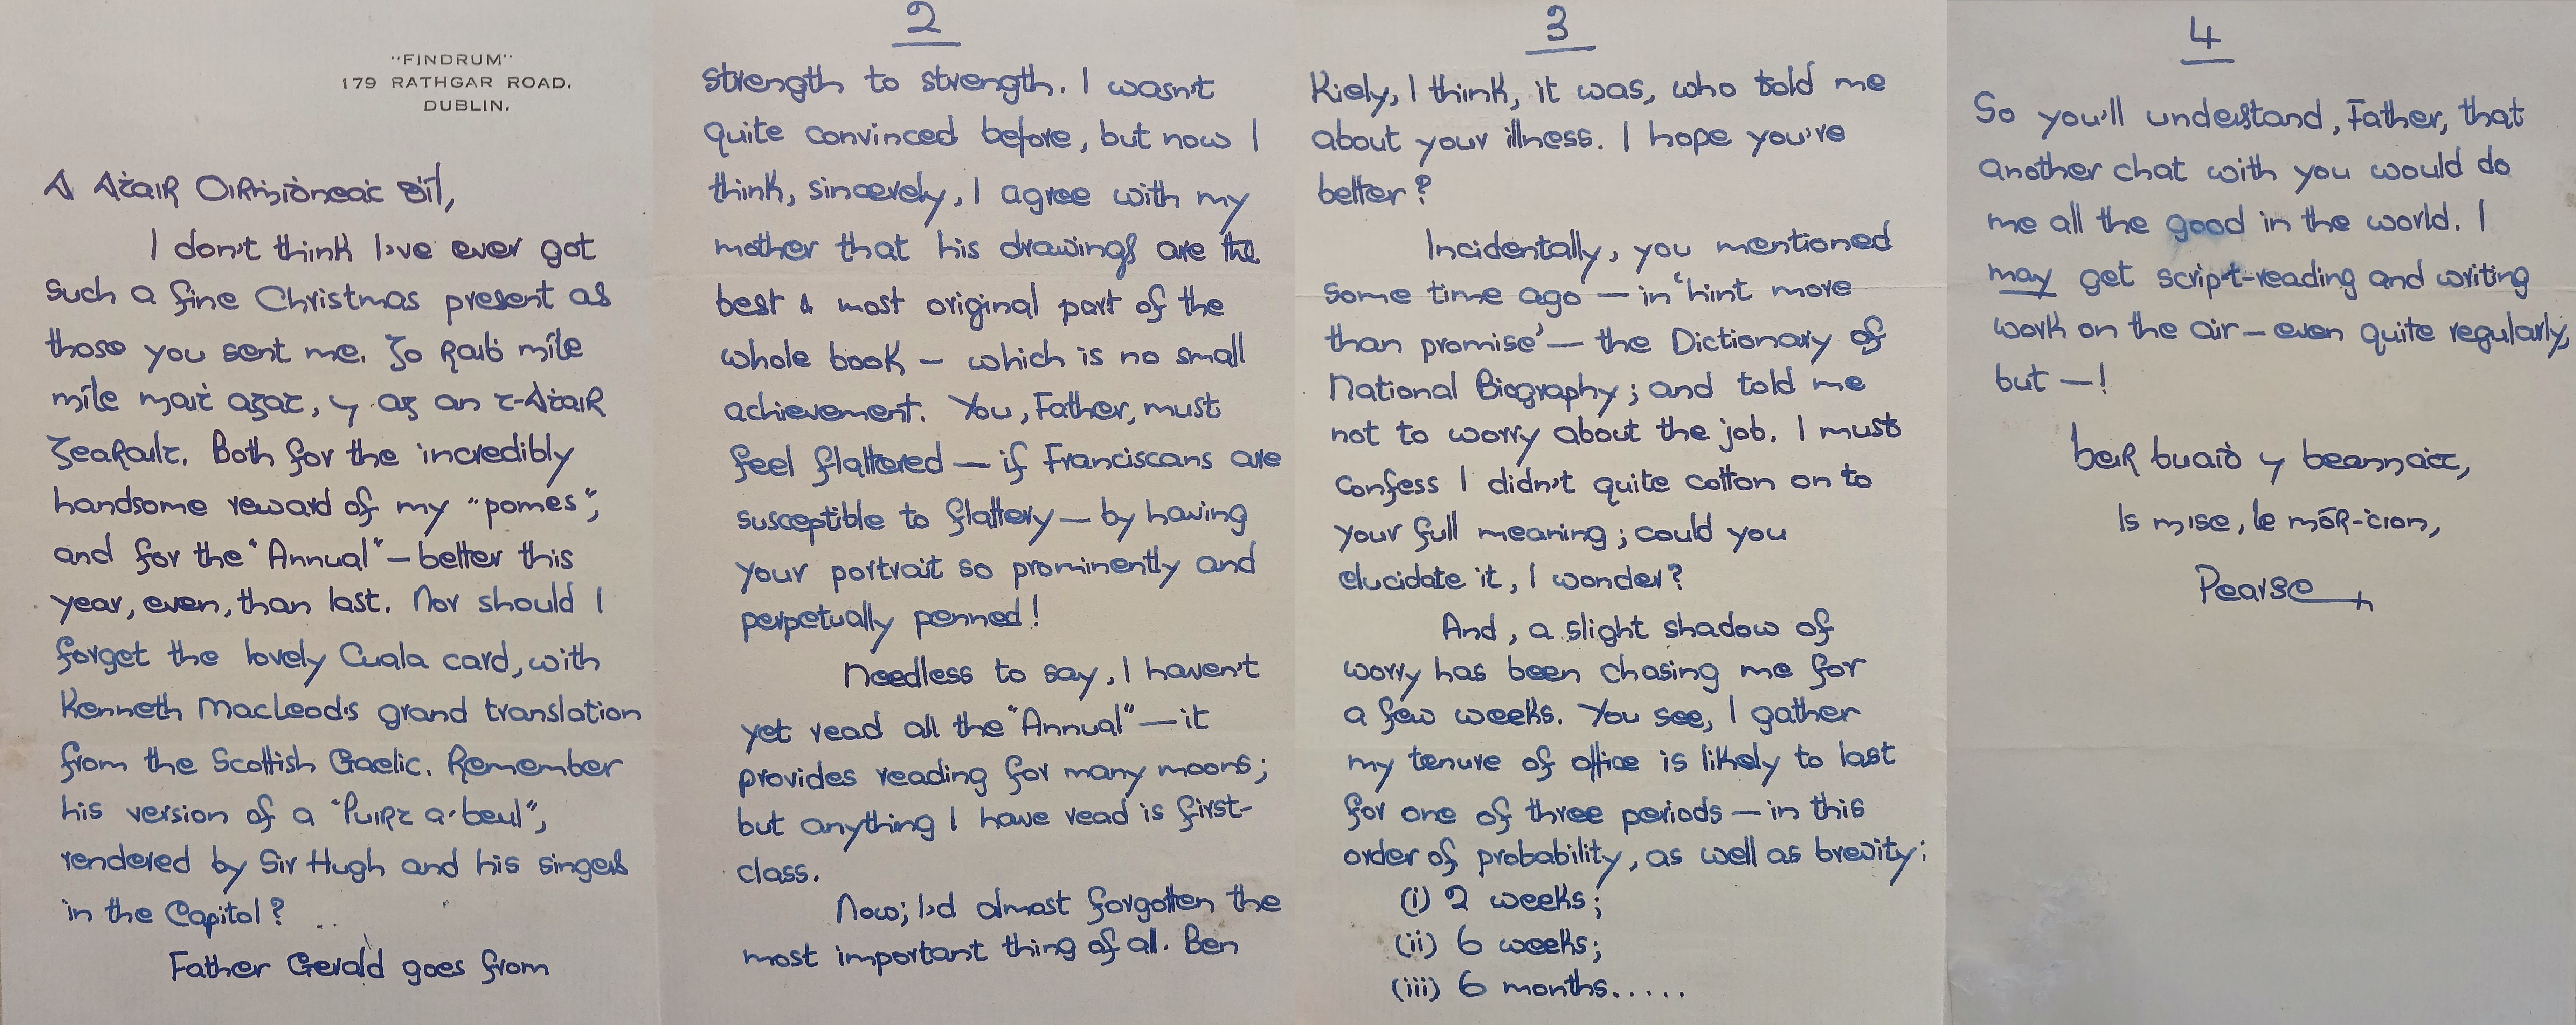 "FINDRUM"
179 RATHGAR ROAD.
DUBLIN.
A Aṫair Oirṁiḋneaċ ḋil,
I don't think I've ever got
such a fine Christmas present as
those you sent me. Go raiḃ míle
míle maiṫ agat, ⁊ ag an t-Aṫair
Gearalt. Both for the incredibly
handsome reward of my "pomes";
and for the "Annual" — better this
year, even, than last. Nor should I
forget the lovely Cuala card, with
Kenneth MacLeod's grand translation
from the Scottish Gaelic. Remember
his version of a "Puirt a' beul",
rendered by Sir Hugh and his singers
in the Capitol?
Father Gerald goes from
2
strength to strength. I wasn't
quite convinced before, but now I
think, sincerely, I agree with my
mother that his drawings are the
best & most original part of the
whole book — which is no small
achievement. You, Father, must
feel flattered — if Franciscans are
susceptible to flattery — by having
your portrait so prominently and
perpetually penned!
Needless to say, I haven't
yet read all the "Annual" — it
provides reading for many moons;
but anything I have read is first-
class.
Now; I'd almost forgotten the
most important thing of all. Ben
3
Kiely, I think, it was, who told me
about your illness. I hope you're
better?
Incidentally, you mentioned
some time ago — in 'hint more
than promise' — the Dictionary of
National Biography; and told me
not to worry about the job. I must
confess I didn't quite cotton on to
your full meaning; could you
elucidate it, I wonder?
And, a slight shadow of
worry has been chasing me for
a few weeks. You see, I gather
my tenure of office is likely to last
for one of three periods — in this
order of probability, as well as brevity:
(i) 2 weeks;
(ii) 6 weeks;
(iii) 6 months.....
4
So you'll understand, Father, that
another chat with you would do
me all the good in the world. I
may get script-reading and writing
work on the air — even quite regularly,
but —!
beir buaiḋ ⁊ beannaċt,
Is mise, le mór-ċion,
Pearse